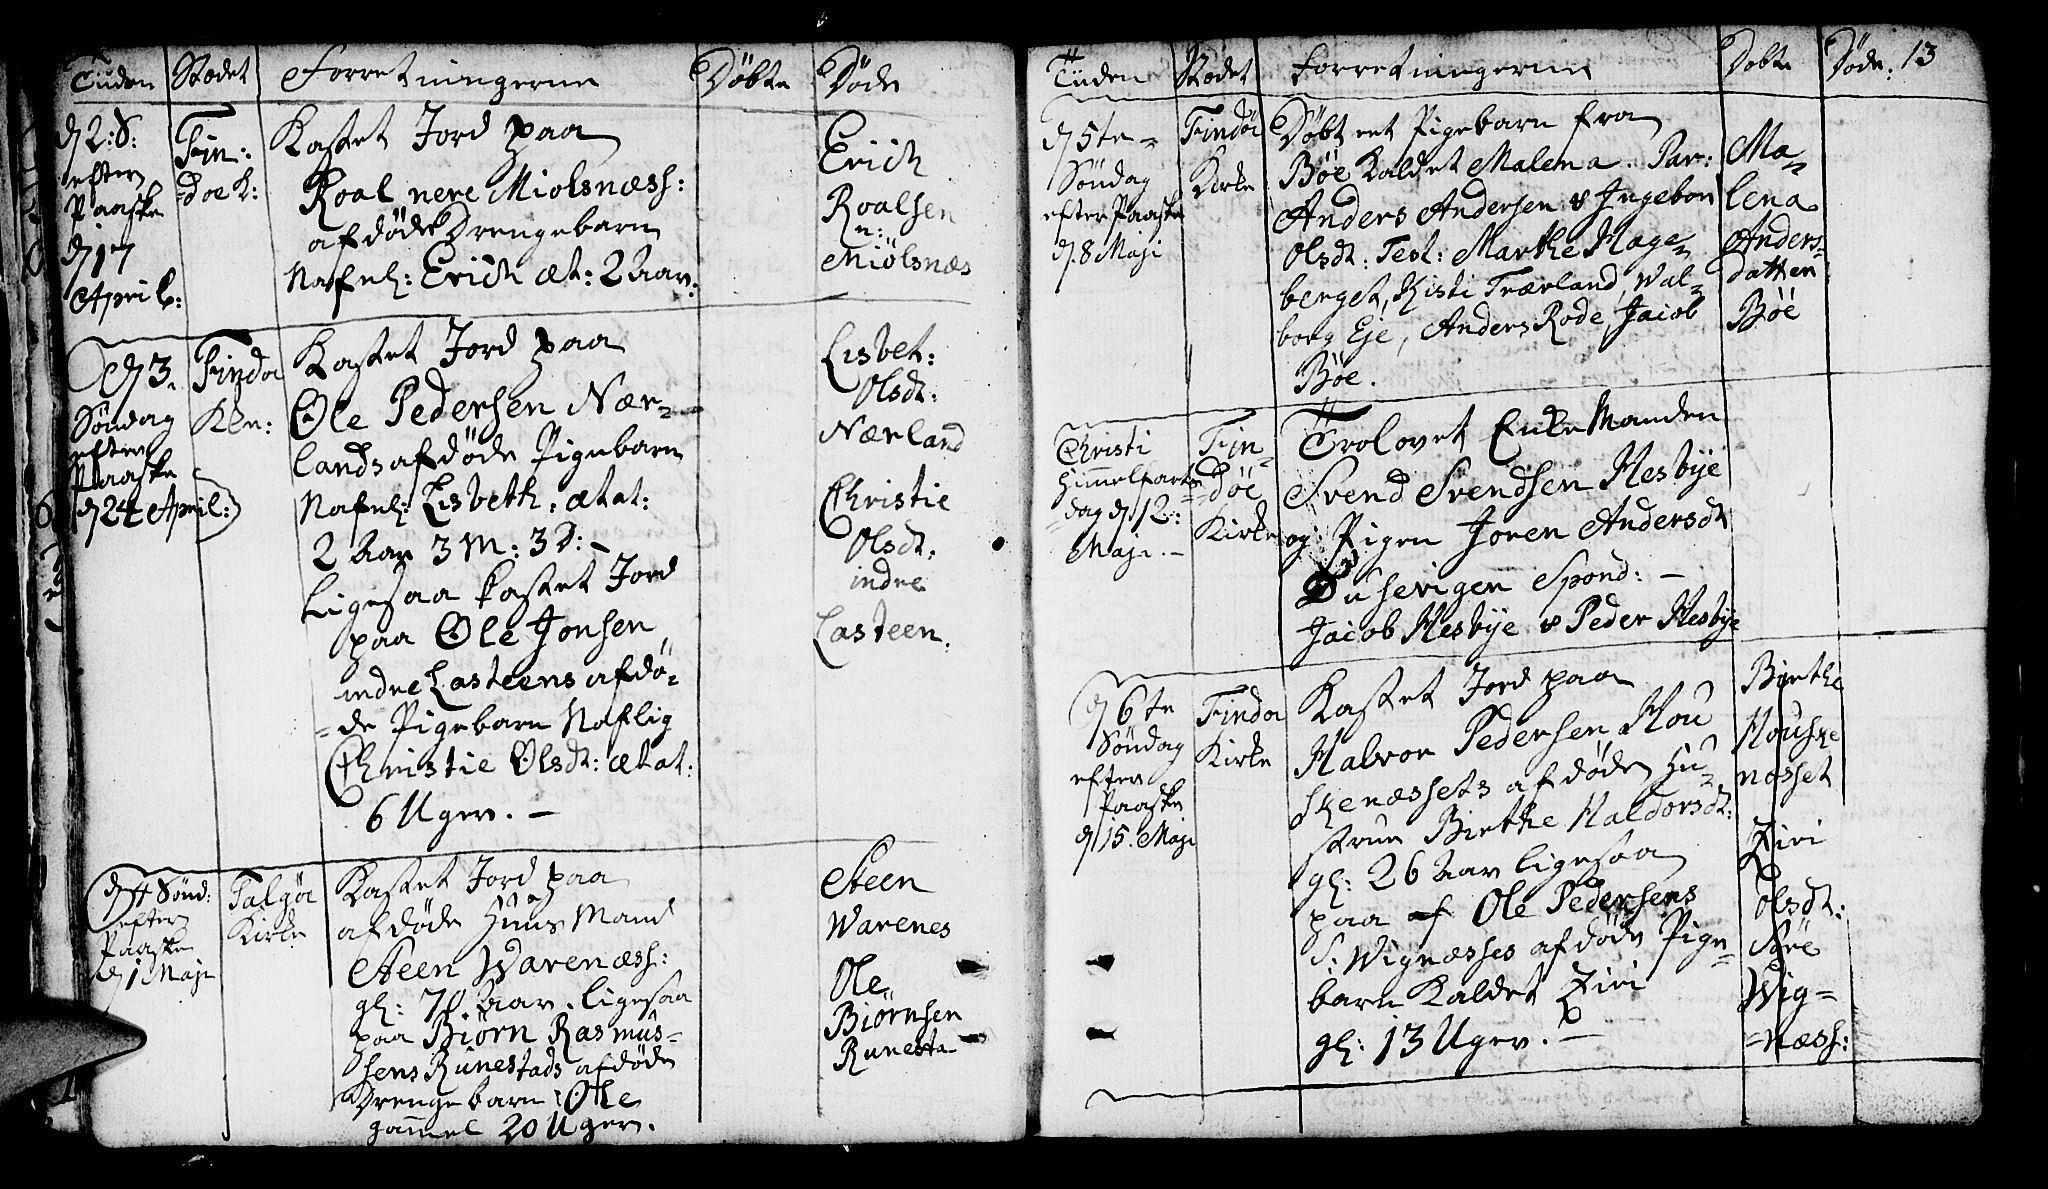 Tiiden Stædet Forretningerne Døbte Døde
d 2: S:
efter
Paaske
d 17
April:
Fin:
=doe K:
Kastet Jord paa
Roal nere Miolsnæss:
afdøde Drengebarn
Nafnl: Erich æt: 2 Aar:
Erich
Roalsen
n:
Miölsnæs
d 3.
Søndag
efter
Paaske
d 24 April:
Findø
Kke:
Kastet Jord paa
Ole Pedersen Nær=
lands afdøde Pigebarn
Nafnl: Lisbeth. ætat:
2 Aar 3 M: 3 D: –
Ligesaa kastet Jord
paa Ole Jonsen
indre Lasteens afdø=
=de Pigebarn Naflig
Christie Olsdt: ætat:
6 Uger. –
Lisbet:
Olsdt:
Nærland
Christie
Olsdt:
indre
Lasteen.
d 4 Sønd:
efter
Paaske
d 1 Maji
Talgøe
Kirke
Kastet Jord paa
afdøde Huus Mand
Steen Warenæss:
gl: 70 Aar. ligesaa
paa Biørn Rasmus=
sens Runestads afdøde
Drengebarn Ole
gamel 20 Uger.
Steen
Warenes
Ole
Biørnsen
Runesta
Tiiden Stædet Forretningerne Døbte Døde: 13
d 5te =
Søndag
efter Paaske
d. 8 Maji
Findøe
Kirke
Døbt eet Pigebarn fra
Bøe Kaldet Malena. Par:
Anders Andersen & Ingebor
Olsdt: Test: Marthe Hage=
berget, Kisti Trærland, Wal=
borg Eje, Anders Rode, Jacob
Bøe.
Ma=
lena
Anders=
datter
Bøe
Christi
Himmelfarts
=dag d 12:
Maji. –
Fin=
=døe
Kirke
Trolovet Enke Manden
Svend Svendsen Hesbye
og Pigen Joren Andersdt
Dusevigen Spond: –
Jacob Hesbye & Peder Hesbye
d 6te
Søndag
efter
Paaske
d 15. Maji
Findøe
Kirke
Kastet Jord paa
Halvor Pedersen Hou
skenæssets afdøde Hu=
strue Birthe Haldorsdt:
gl: 26 Aar ligesaa
paa af Ole Pedersens
S: Wignæsses afdøde Pige=
barn Kaldet Ziri
gl: 13 Uger. –
Birthe
Houske
næsset
Ziri
Olsdt:
Søre
Wig=
=næss: